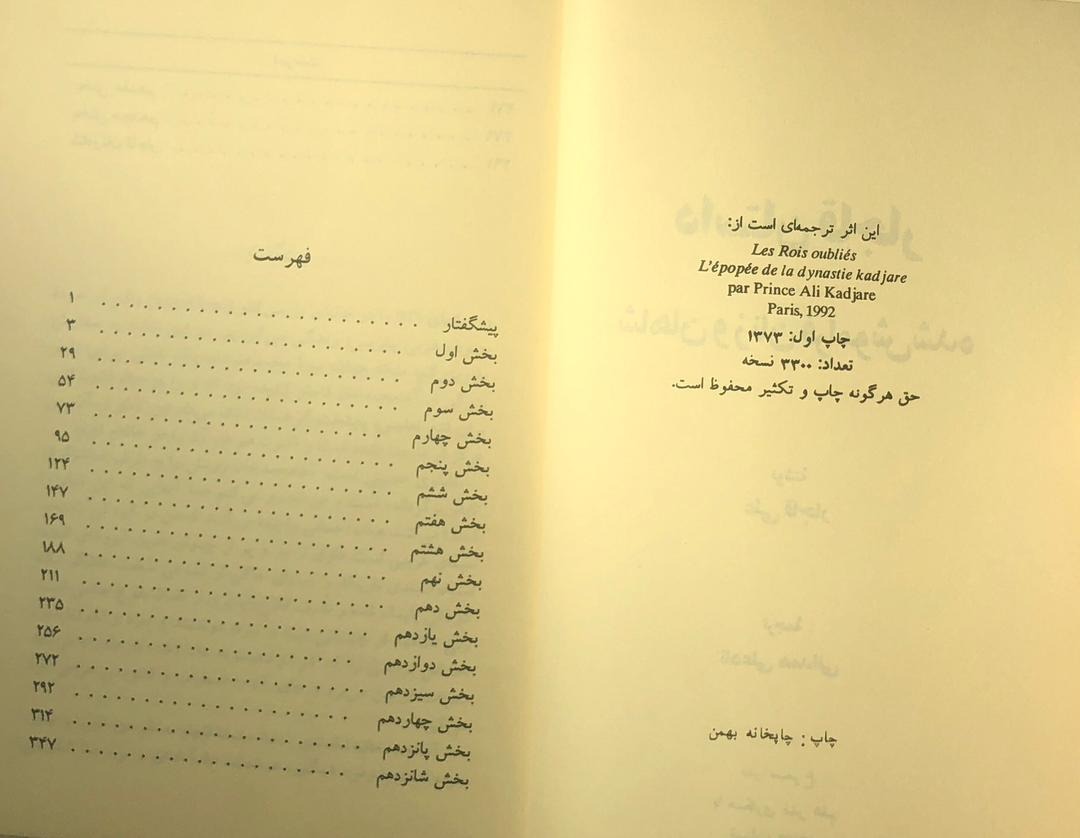 این اثر ترجمه‌ای است از:
Les Rois oubliés
L'épopée de la dynastie kadjare
par Prince Ali Kadjare
Paris, 1992
چاپ اول: ۱۳۷۳
تعداد: ۳۳۰۰ نسخه
حق هرگونه چاپ و تکثیر محفوظ است.
چاپ: چاپخانه بهمن
فهرست
پیشگفتار ۱
بخش اول ۳
بخش دوم ۲۹
بخش سوم ۵۴
بخش چهارم ۷۳
بخش پنجم ۹۵
بخش ششم ۱۲۴
بخش هفتم ۱۴۷
بخش هشتم ۱۶۹
بخش نهم ۱۸۸
بخش دهم ۲۱۱
بخش یازدهم ۲۳۵
بخش دوازدهم ۲۵۶
بخش سیزدهم ۲۷۲
بخش چهاردهم ۲۹۲
بخش پانزدهم ۳۱۴
بخش شانزدهم ۳۴۷